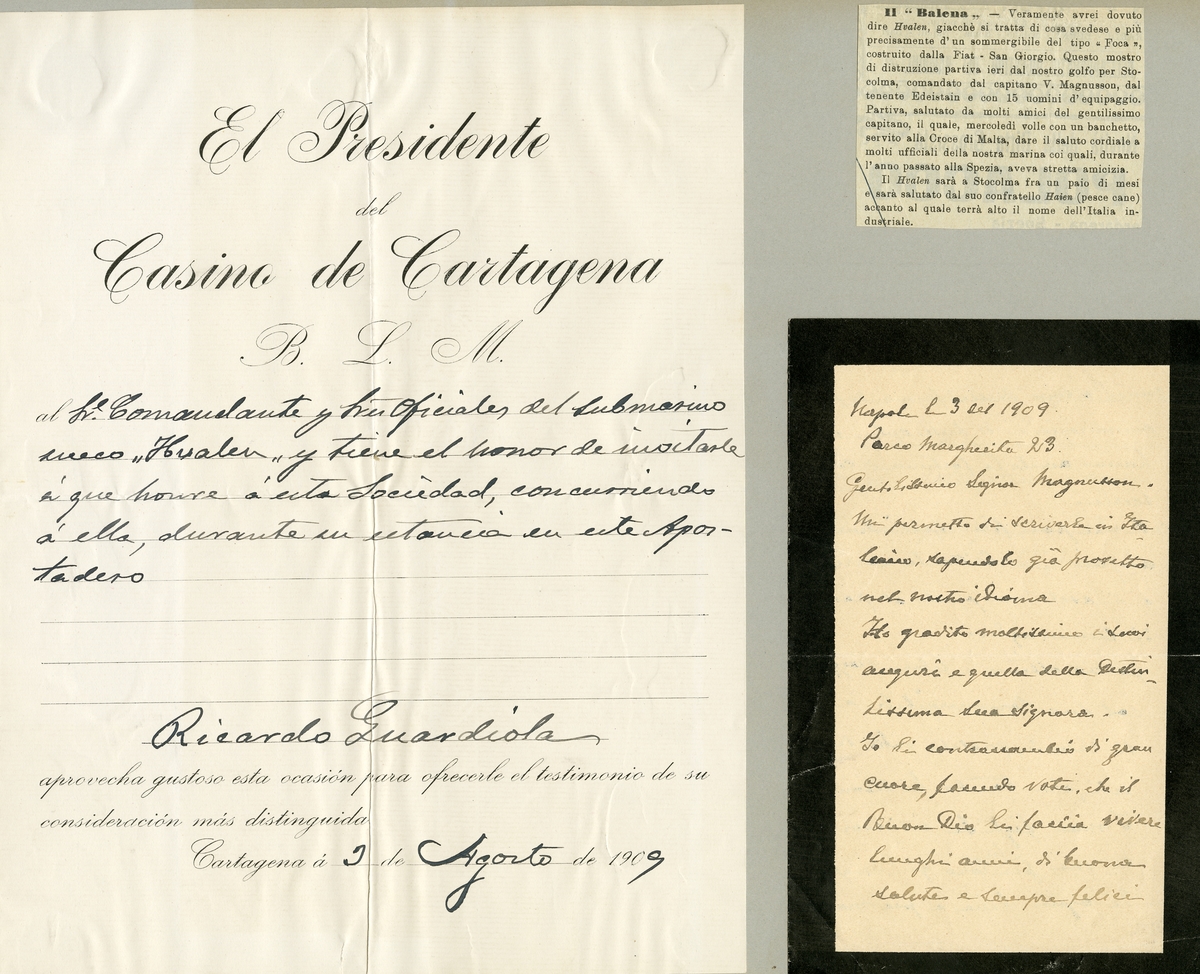 El Presidente
del
Casino de Cartagena
B. L. M.
al Sr. Comandante y Sres Oficiales del submarino
sueco „Hvalen„ y tiene el honor de invitarle
á que honre á esta Sociedad, concurriendo
á ella, durante su estancia en este Apos-
tadero
Ricardo Guardiola
aprovecha gustoso esta ocasión para ofrecerle el testimonio de su
consideración más distinguida
Cartagena á 3 de Agosto de 1909
Il “ Balena „ — Veramente avrei dovuto
dire Hvalen, giacchè si tratta di cosa svedese e più
precisamente d'un sommergibile del tipo « Foca »,
costruito dalla Fiat - San Giorgio. Questo mostro
di distruzione partiva ieri dal nostro golfo per Sto-
colma, comandato dal capitano V. Magnusson, dal
tenente Edeistain e con 15 uomini d'equipaggio.
Partiva, salutato da molti amici del gentilissimo
capitano, il quale, mercoledì volle con un banchetto,
servito alla Croce di Malta, dare il saluto cordiale a
molti ufficiali della nostra marina coi quali, durante
l'anno passato alla Spezia, aveva stretta amicizia.
Il Hvalen sarà a Stocolma fra un paio di mesi
e sarà salutato dal suo confratello Haien (pesce cane)
accanto al quale terrà alto il nome dell'Italia in-
dustriale.
Napoli li 3 del 1909.
Parco Margherita 23.
Gentilissimo Signor Magnusson.
Mi permetto di scriverle in Ita-
liano, sapendolo già provetto
nel nostro idioma
Ho gradito moltissimo i suoi
auguri e quelli della Distin-
tissima sua Signora.
Io li contraccambio di gran
cuore, facendo voti, che il
Buon Dio li faccia vivere
lunghi anni, di buona
salute e sempre felici